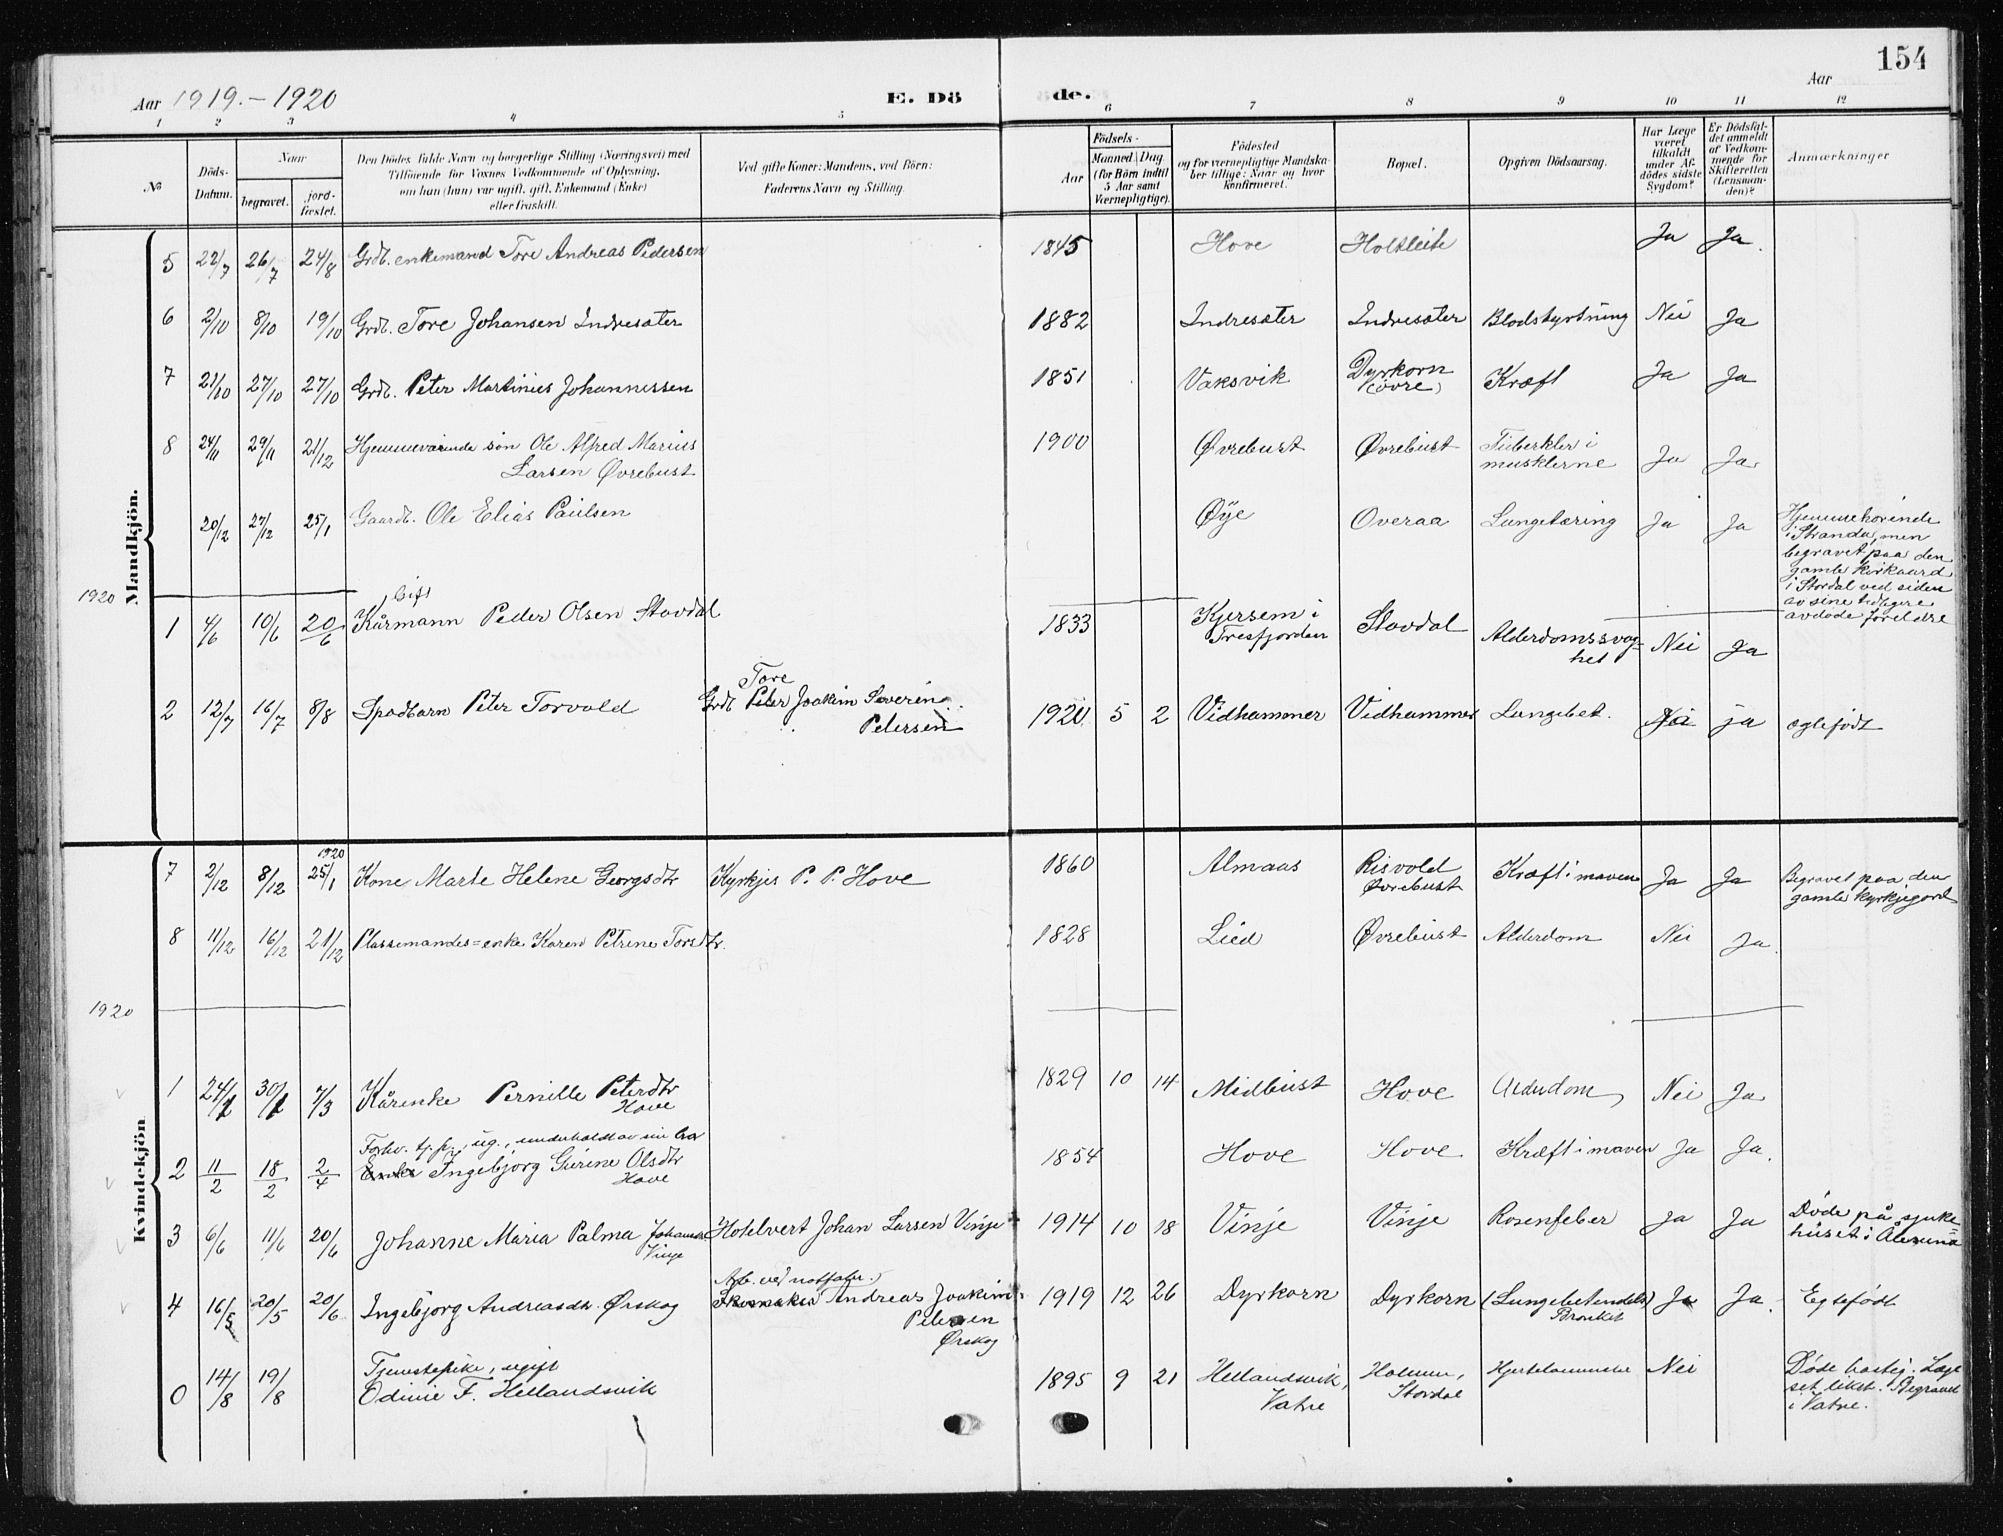 154
Aar 1919. - 1920
E. Dö
de.
Aar
1 2 3 4 5 6 7 8 9 10 11 12
No
Döds-Datum.
Naar
begravet.
jord-fæstet.
Den Dödes fulde Navn og borgerlige Stilling (Næringsvei) med
Tilföiende for Voxnes Vedkommende af Oplysning,
om han (hun) var ugift, gift, Enkemand (Enke)
eller fraskilt.
Ved gifte Koner: Mandens, ved Börn:
Faderens Navn og Stilling.
Födsels-
Aar
Maaned. Dag.
(for Börn indtil
5 Aar samt
Værnepligtige).
Födested
og for værnepligtige Mandska-
ber tillige: Naar og hvor
konfirmeret.
Bopæl.
Opgiven Dödsaarsag.
Har Læge
været
tilkaldt
under Af-
dödes sidste
Sygdom?
Er Dödsfal-
det anmeldt
af Vedkom-
mende for
Skifteretten
(Lensman-
den)?
Anmærkninger
Mandkjön.
5 22/7 26/7 24/8 Grdb. enkemand Tore Andreas Pedersen 1845 Hove Holtleite Ja Ja.
6 2/10 8/10 19/10 Grdb. Tore Johansen Indresæter 1882 Indresæter Indresæter Blodstyrtning Nei Ja
7 21/10 27/10 27/10 Grdb. Peter Martinius Johannessen 1851 Vaksvik Dyrkorn (øvre) Kræft Ja Ja
8 24/11 29/11 21/12 Hjemmeværende søn Ole Alfred Marius
Larsen Øvrebust 1900 Øvrebust Øvrebust Tuberkler i
musklerne Ja Ja
20/12 27/12 25/1 Gaardb. Ole Elias Paulsen Øye Overaa Lungetæring Ja Ja Hjemmehørende
i Stranda, men
begravet paa den
gamle kirkaard
i Stordal ved siden
av sine tidligere
avdøde foreldre
1920
Gift
1 4/6 10/6 20/6 Kårmann Peder Olsen Stavdal 1833 Kjersem i
Tresfjorden Stavdal Alderdomssvag=
het Nei Ja
2 12/7 16/7 8/8 Spædbarn Peter Torvald Tore
Grdb. Peter Joakim Severin
Petersen 1920 5 2 Vidhammer Vidhammer Lungebet. Ja ja egtefødt
Kvindekjön
1920
7 2/12 8/12 25/1 Kone Marte Helene Georgsdtr Kyrkjes P. P. Hove 1860 Almaas Risvold
Øvrebust Kræft i maven Ja Ja Begravet paa den
gamle kyrkjegord
8 11/12 16/12 21/12 Plassemandes=enke Karen Petrine Torsdtr. 1828 Lied Øvrebust Alderdom Nei Ja.
1920
1 24/1 30/1 7/3 Kårenke Pernille Peterdtr
Hove 1829 10 14 Midbust Hove Alderdom Nei Ja
Forhv. tj.p., ug., underholdt av sin bror
2 11/2 18/2 2/4 Enke Ingebjørg Gurine Olsdtr
Hove 1854 Hove Hove Kræft i maven Ja Ja.
3 6/6 11/6 20/6 Johanne Maria Palma Johansd.
Vinje Hotelvert Johan Larsen Vinje 1914 10 18 Vinje Vinje Rosenfeber Ja Ja Døde på sjuke-
huset i Ålesund
4 16/5 20/5 20/6 Ingebjørg Andreasdtr. Ørskog Arb. ved notfabr.
Skomaker Andreas Joakim
Petersen
Ørskog 1919 12 26 Dyrkorn Dyrkorn (Lungebetendelse)
Bronkit Ja Ja. Egtefødt
0 14/8 19/8 Tjenestepike, ugift
Odinie F. Hellandsvik 1895 9 21 Hellandsvik,
Vatne Holmen,
Stordal Hjertelammelse Nei Døde hastig. Læge
set liket. Begravet
i Vatne.